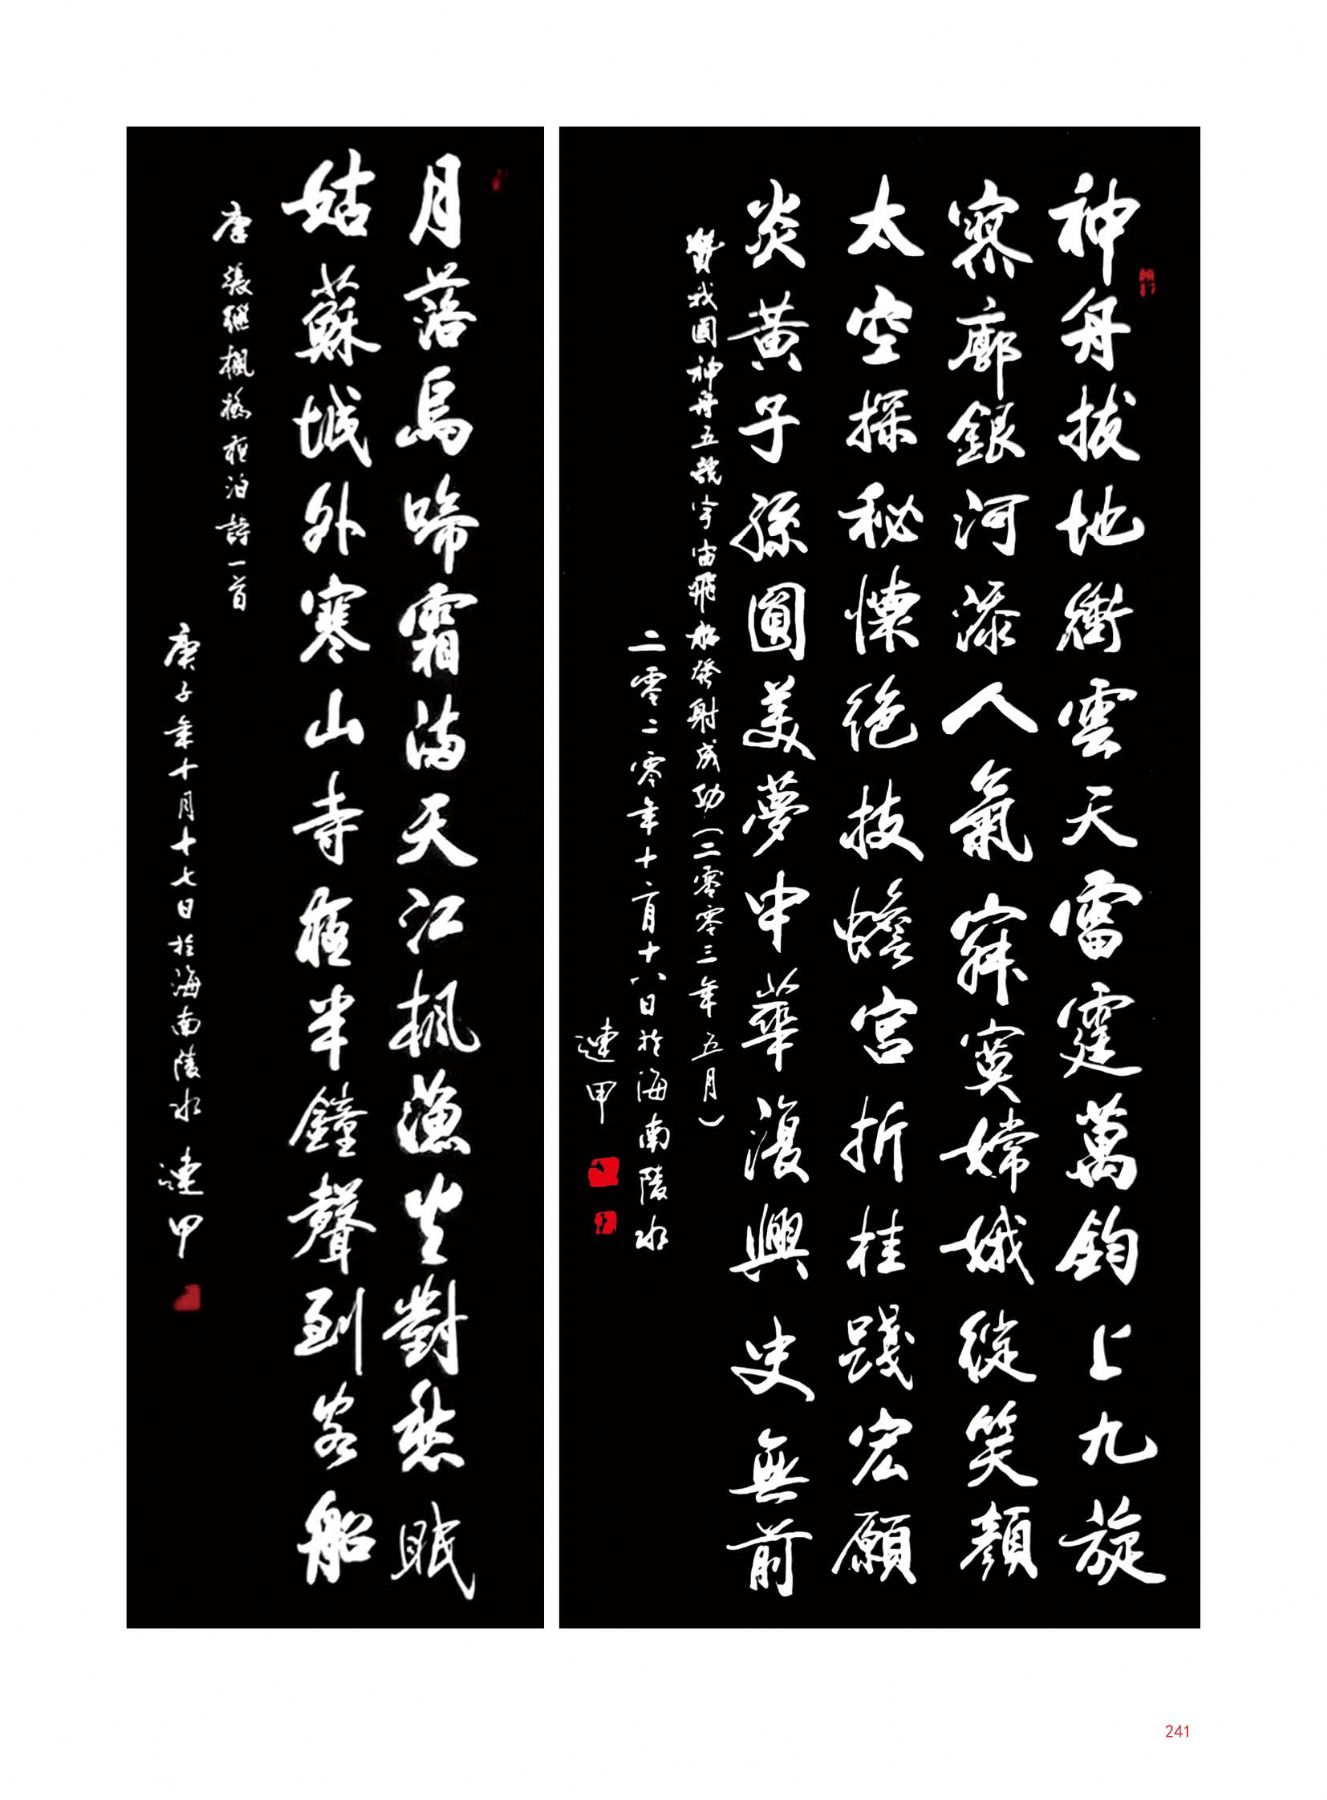 神舟拔地衝雲天雷霆萬鈞上九旋
寥廓銀河添人氣寂寞嫦娥綻笑顏
太空探秘懷絕技蟾宮折桂踐宏願
炎黃子孫圓美夢中華復興史無前
贊我國神舟五號宇宙飛船發射成功(二零零三年五月)
二零二零年十二月十八日於海南陵水
連甲
月落烏啼霜滿天江楓漁火對愁眠
姑蘇城外寒山寺夜半鐘聲到客船
唐張繼楓橋夜泊詩一首
庚子年十月十七日於海南陵水連甲
241